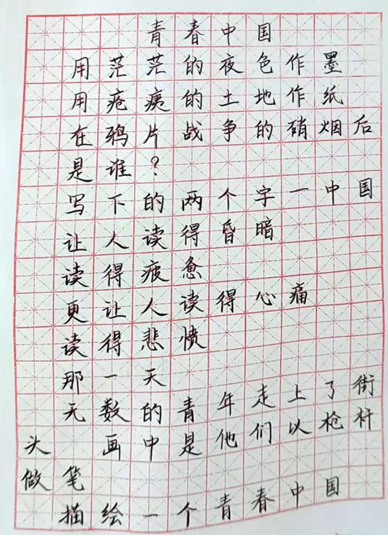 青春中国
用茫茫的夜色作墨
用疮痍的土地作纸
在鸦片的战争的硝烟后
是谁？
写下的两个字一中国
让人读得昏暗
读得疲惫
更让人读得心痛
读得悲愤
那一天
无数的青年走上了街
头画中是他们以枪杆
做笔
描绘一个青春中国